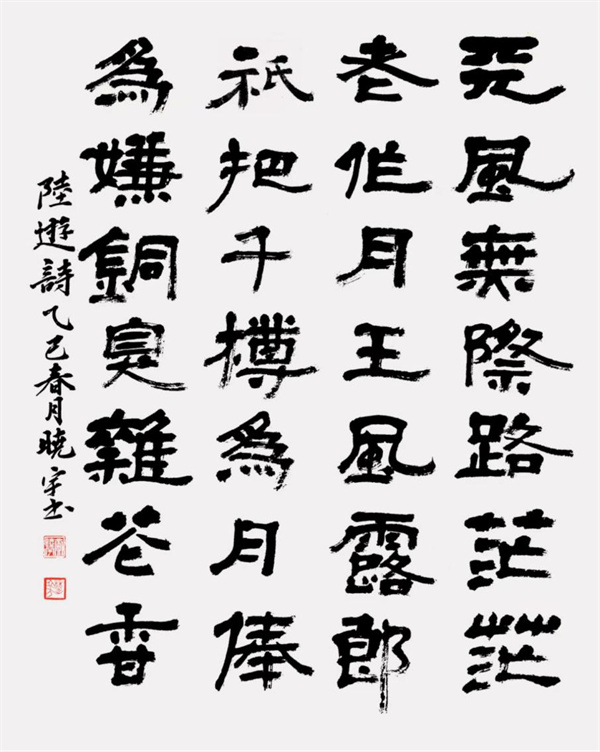 天風無際路茫茫
老作月王風露郎
祇把千樽為月俸
為嫌銅臭雜花香
陸遊詩乙巳春月曉宇书